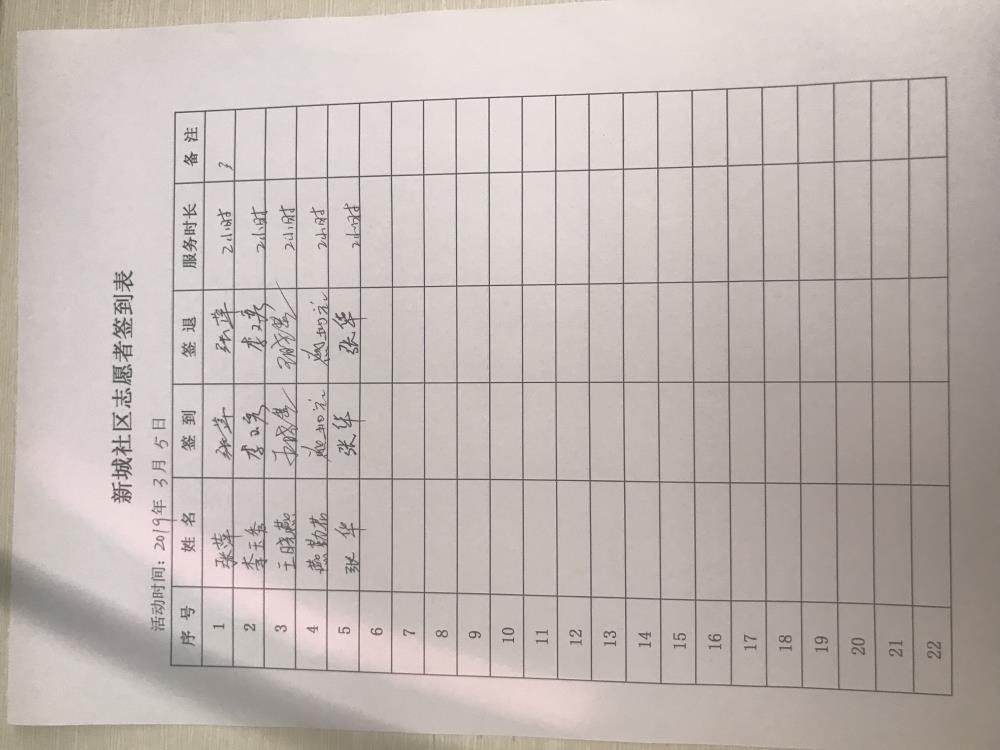 新城社区志愿者签到表
活动时间：2019年 3 月 5 日
序 号 姓 名 签 到 签 退 服务时长 备 注
1 张萍 张萍 张萍 2小时
2 李玉秀 李玉秀 2小时
3 王晓燕 王晓燕 2小时
4 燕勤花 2小时
5 张 华 张 华 张 华 2小时
6
7
8
9
10
11
12
13
14
15
16
17
18
19
20
21
22